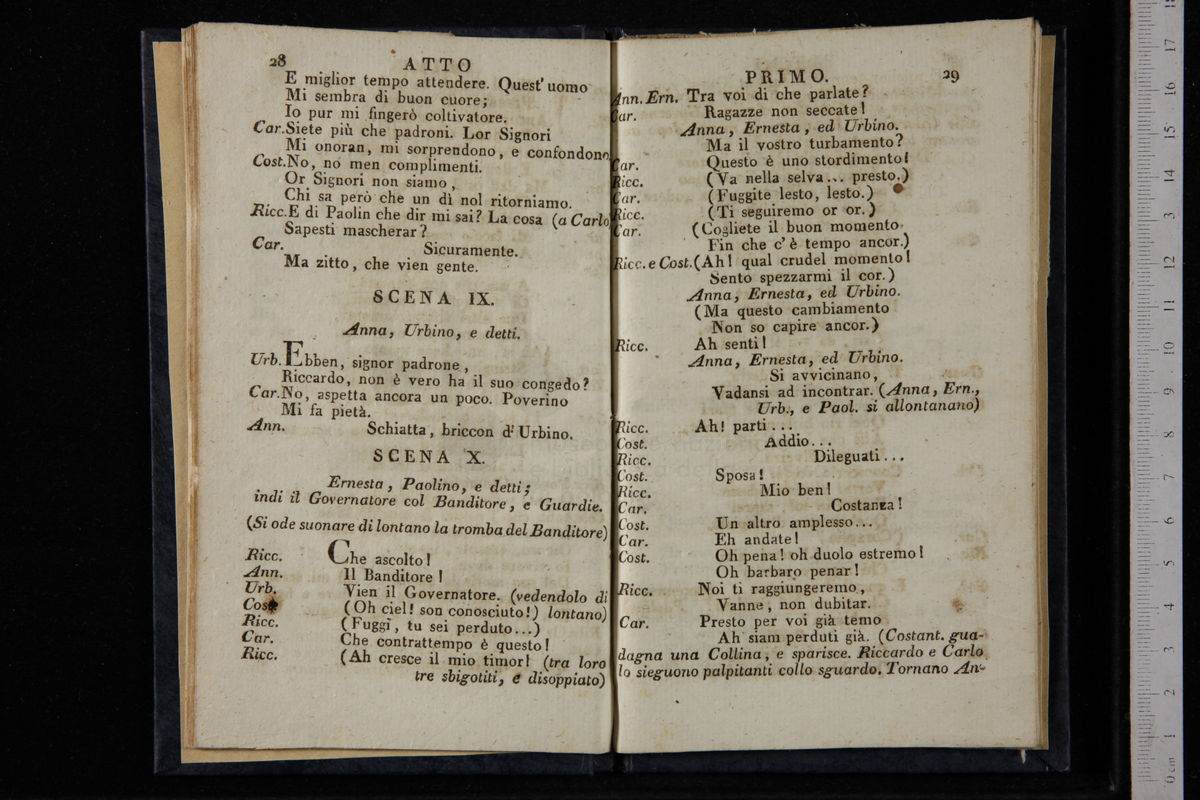 28 ATTO
E miglior tempo attendere. Quest' uomo
Mi sembra di buon cuore;
Io pur mi fingerò coltivatore.
Car. Siete più che padroni. Lor Signori
Mi onoran, mi sorprendono, e confondono
Cost. No, no men complimenti.
Or Signori non siamo,
Chi sa però che un dì nol ritorniamo.
Ricc. E di Paolin che dir mi sai? La cosa (a Carlo
Sapesti mascherar?
Car. Sicuramente.
Ma zitto, che vien gente.
SCENA IX.
Anna, Urbino, e detti.
Urb. Ebben, signor padrone,
Riccardo, non è vero ha il suo congedo?
Car. No, aspetta ancora un poco. Poverino
Mi fa pietà.
Ann. Schiatta, briccon d' Urbino.
SCENA X.
Ernesta, Paolino, e detti;
indi il Governatore col Banditore, e Guardie.
(Si ode suonare di lontano la tromba del Banditore)
Ricc. Che ascolto!
Ann. Il Banditore!
Urb. Vien il Governatore. (vedendolo di
Cost. (Oh ciel! son conosciuto!) lontano)
Ricc. (Fuggi, tu sei perduto...)
Car. Che contrattempo è questo!
Ricc. (Ah cresce il mio timor! (tra loro
tre sbigotiti, e disoppiato)
PRIMO. 29
Ann. Ern. Tra voi di che parlate?
Car. Ragazze non seccate!
Anna, Ernesta, ed Urbino.
Ma il vostro turbamento?
Car. Questo è uno stordimento!
Ricc. (Va nella selva... presto.)
Car. (Fuggite lesto, lesto.)
Ricc. (Ti seguiremo or or.)
Car. (Cogliete il buon momento
Fin che c' è tempo ancor.)
Ricc. e Cost. (Ah! qual crudel momento!
Sento spezzarmi il cor.)
Anna, Ernesta, ed Urbino.
(Ma questo cambiamento
Non so capire ancor.)
Ricc. Ah senti!
Anna, Ernesta, ed Urbino.
Si avvicinano,
Vadansi ad incontrar. (Anna, Ern.,
Urb., e Paol. si allontanano)
Ricc. Ah! parti...
Cost. Addio...
Ricc. Dileguati...
Cost. Sposa!
Ricc. Mio ben!
Car. Costanza!
Cost. Un altro amplesso...
Car. Eh andate!
Cost. Oh pena! oh duolo estremo!
Oh barbaro penar!
Ricc. Noi ti raggiungeremo,
Vanne, non dubitar.
Car. Presto per voi già temo
Ah siam perduti già. (Costant. gua-
dagna una Collina, e sparisce. Riccardo e Carlo
lo sieguono palpitanti collo sguardo. Tornano An-
0 cm 1 2 3 4 5 6 7 8 9 10 11 12 13 14 15 16 17 18